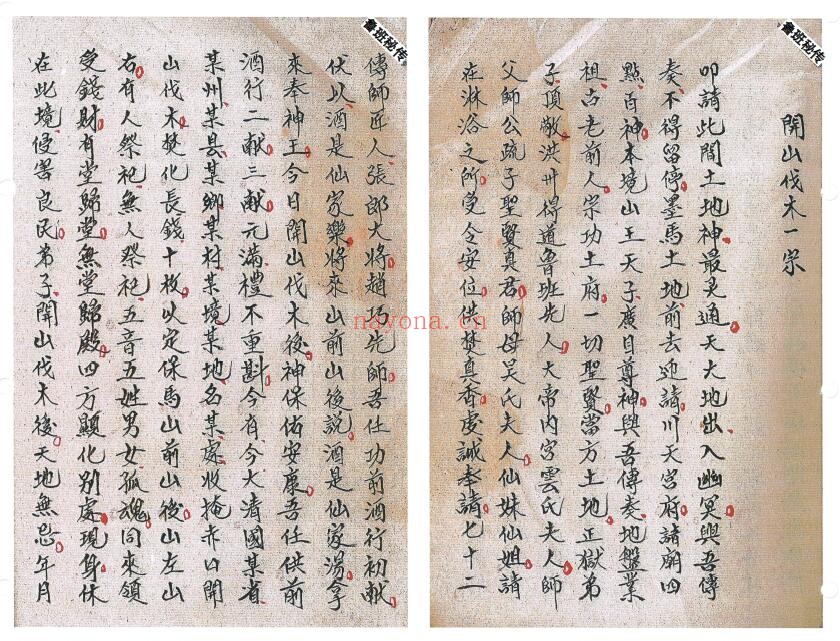 魯班秘传
開山伐木一宗
叩請此間土地神最灵通天大地出入幽冥與吾傳
奏不得留停墨馬土地前去迎請川天宮府請廟四
點百神本境山王天子廣目尊神與吾傳奏地盤業
祖古老前人宗功土府一切聖賢當方土地正獄弟
子頂敬洪州得道鲁班先人大帝内宮雲氏夫人師
父師公疏子聖賢真君師母吴氏夫人仙妹仙姐請
在淋浴之所受令安位供焚真香虔誠奉請七十二
魯班秘传
傳師匠人張郎大將趙巧先師吾仕功前酒行初献
伏以酒是仙家藥將來山前山後説酒是仙家湯拿
來奉神王今日開山伐木後神保佑安康吾任供前
酒行二献三献元滿禮不重斟今有今大清國某省
某州某县某鄉某村某境某地名某處收掩赤口開
山伐木焚化長錢十枚以定保馬山前山後山左山
右有人祭祀無人祭祀五音五姓男女孤魂同來領
受錢財有堂歸堂無堂歸殿四方顯化别處現身休
在此境侵害良民弟子開山伐木後天地無忌年月
nayona.cn